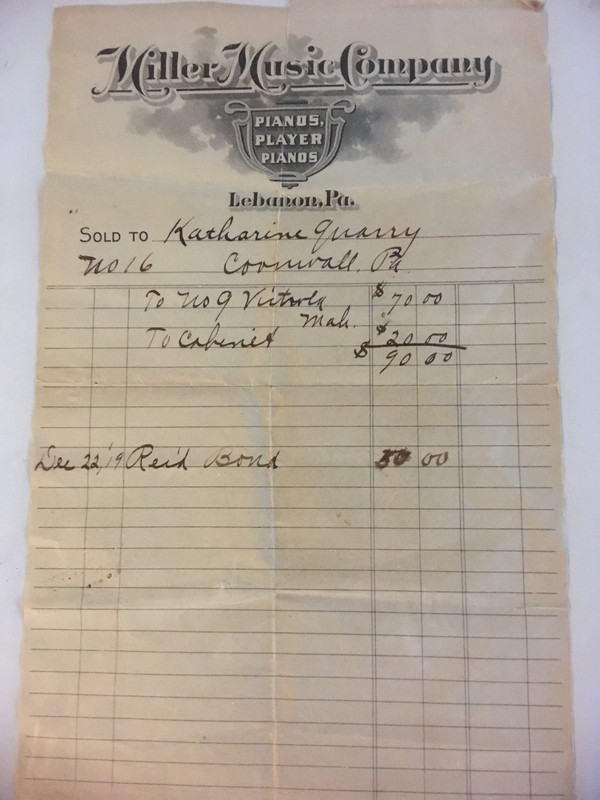 Miller Music Company
PIANOS,
PLAYER
PIANOS
Lebanon, Pa.
SOLD TO Katharine Quarry
No 16 Cornwall, Pa
To No 9 Victrola $70 00
Mah.
To Cabinet $20 00
$90 00
Dec 22, '19 Rec'd Bond 50 00